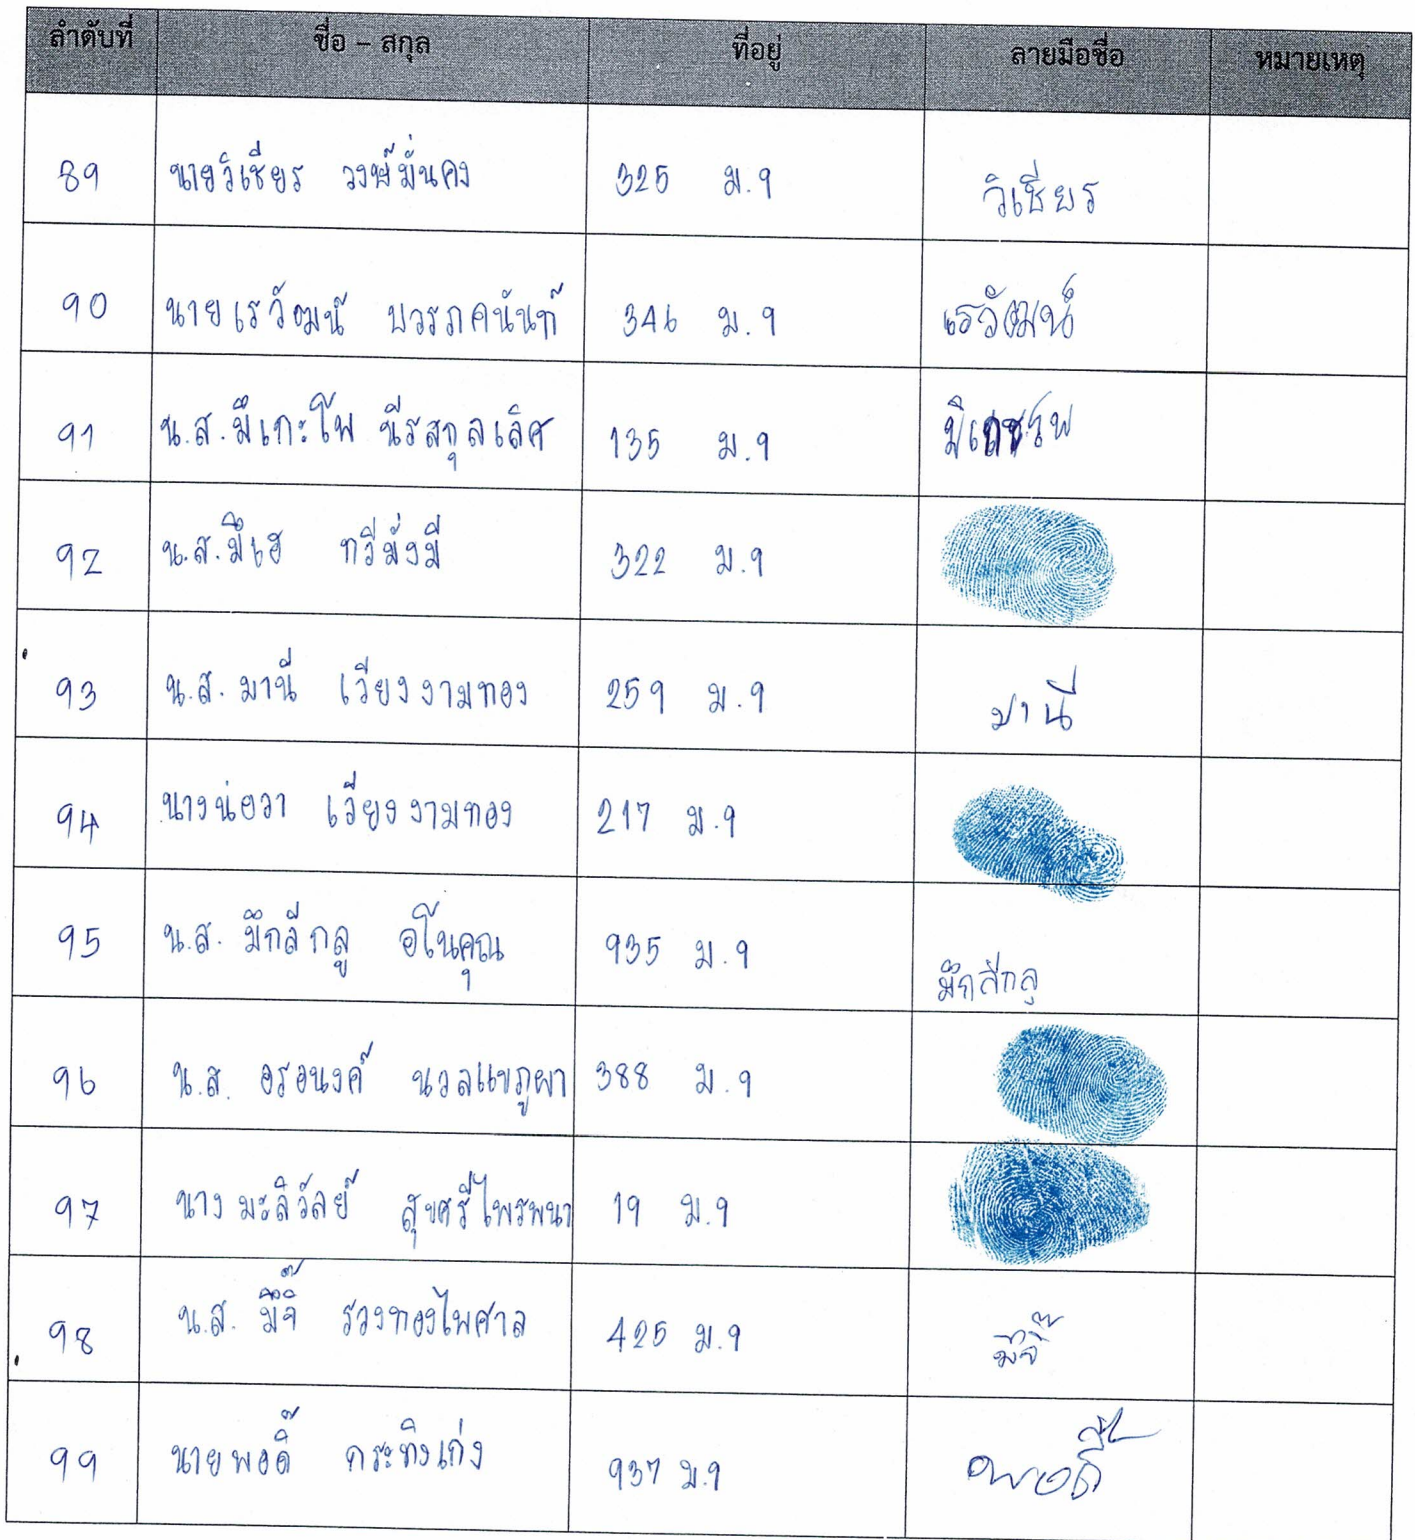 ลำดับที่ ชื่อ – สกุล ที่อยู่ ลายมือชื่อ หมายเหตุ
89 นายวิเชียร วงษ์มั่นคง 325 ม.9 วิเชียร
90 นายเรวัฒน์ บวรภคนันท์ 346 ม.9 เรวัฒน์
91 น.ส.มึเกะโพ นีรสกุลเลิศ 135 ม.9
92 น.ส.มึเฮ ทวีมั่งมี 322 ม.9
93 น.ส. มานี เวียงงามทอง 259 ม.9 มานี
94 นางน่อวา เวียงงามทอง 217 ม.9
95 น.ส. มึกลีกลู อโนคุณ 935 ม.9 มึกลีกลู
96 น.ส. อรอนงค์ นวลแขภูผา 388 ม.9
97 นาง มะลิวัลย์ สุขศรีไพรพนา 19 ม.9
98 น.ส. มึจิ๊ รวงทองไพศาล 425 ม.9 มึจิ๊
99 นายพอดิ๊ กระทิงเก่ง 937 ม.9 พอดิ๊